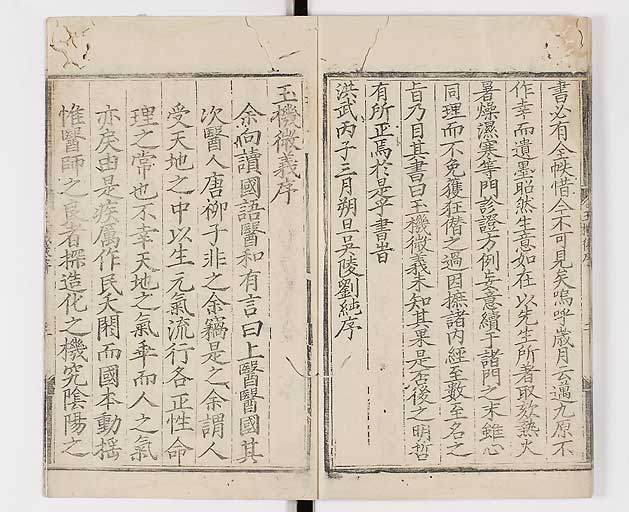 書必有全帙惜今不可見矣嗚呼歲月云邁九原不
作幸而遺墨昭然生意如在以先生所著取欬熱火
暑燥濕寒等門診證方例妄意續于諸門之末雖心
同理而不免獲狂僭之過因摭諸內經至數至名之
旨乃目其書曰玉機微義未知其果是否後之明哲
有所正焉於是乎書昔
洪武丙子三月朔旦吳陵劉純序
玉機微義序
余向讀國語醫和有言曰上醫醫國其
次醫人唐柳子非之余竊是之余謂人
受天地之中以生元氣流行各正性命
理之常也不幸天地之氣乖而人之氣
亦戾由是疾厲作民夭閼而國本動搖
惟醫師之良者探造化之機究陰陽之